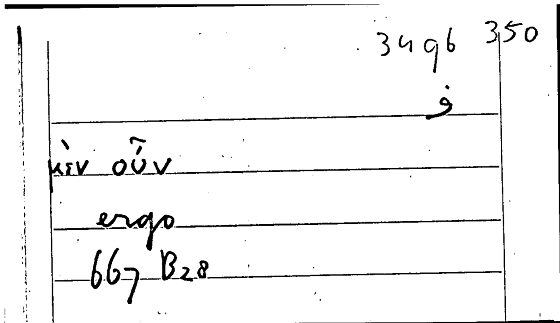 3496 350
ف
μὲν οὖν
ergo
667 B28